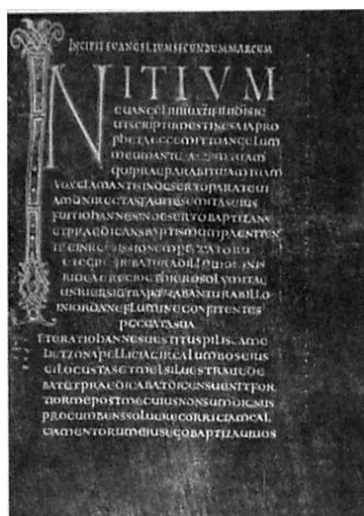 INCIPIT EVANGELIUM SECUNDUM MARCUM
INITIVM
EUANGELII
UTSCRIPTUM EST IN ESAIA PRO
PHETA ECCE MITTO ANGELUM
MEUM ANTE
QUI PRAEPARABIT UIAM TUAM
UOX CLAMANTIS IN DESERTO PARATE UI
AM DNI RECTAS FACITE SEMITAS EIUS
FUIT IOHANNES IN DESERTO BAPTIZANS
ET PRAEDICANS BAPTISMUM PAENITEN
UNIUERSI ET BAPTIZABANTUR AB ILLO
IN IORDANE FLUMINE CONFITENTES
PECCATA SUA
ET ERAT IOHANNES UESTITUS PILIS CAME
LI ET ZONA PELLICIA CIRCA LUMBOS EIUS
ET LOCUSTAS ET MEL SILUESTRAE EDE
BAT ET PRAEDICABAT DICENS UENIT FOR
TIOR ME POST ME CUIUS NON SUM DIGNUS
PROCUMBENS SOLUERE CORRIGIAM CAL
CIAMENTORUM EIUS EGO BAPTIZAUI UOS